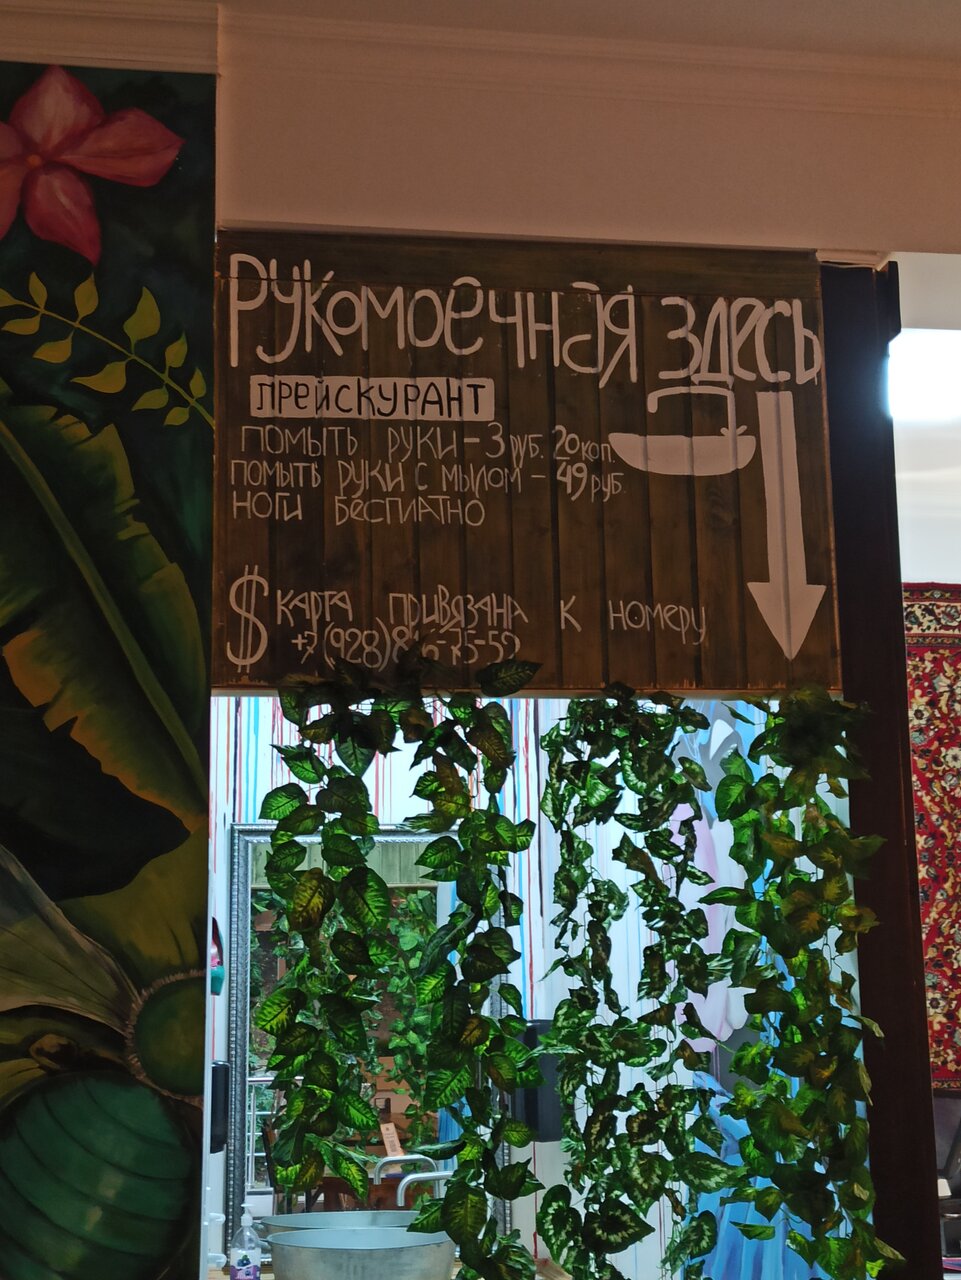 Рукомоечная здесь
прейскурант
помыть руки - 3 руб. 20 коп.
помыть руки с мылом - 49 руб.
ноги бесплатно
$ карта привязана к номеру